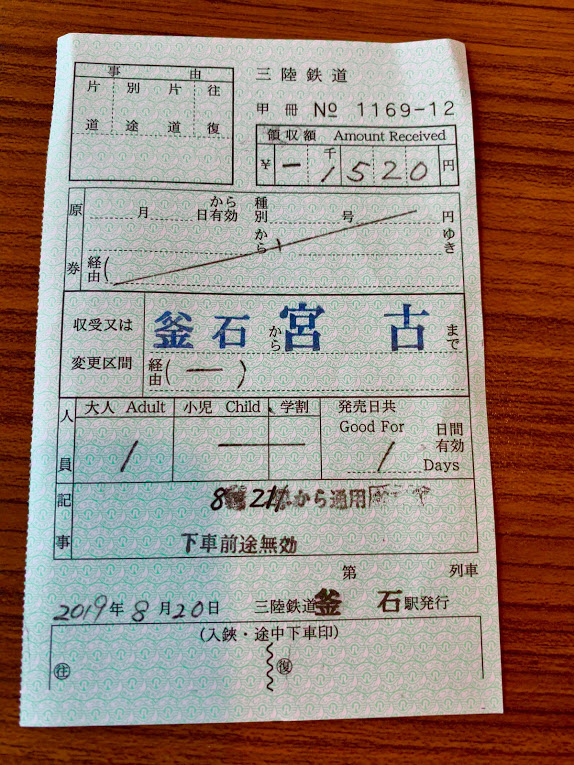 事 由
片道 別途 片道 往復
三陸鉄道
甲冊 № 1169-12
領収額 Amount Received
¥ - 千1520円
原券
月 日から有効 種別 号 円
から ゆき
経由(
収受又は変更区間
釜石から宮古まで
経由( — )
人員
大人 Adult 小児 Child 学割 発売日共 Good For
1 — 1 日間有効 Days
記事
8 21 から通用
下車前途無効
第 列車
2019年8月20日 三陸鉄道釜石駅発行
(入鋏・途中下車印)
往 復